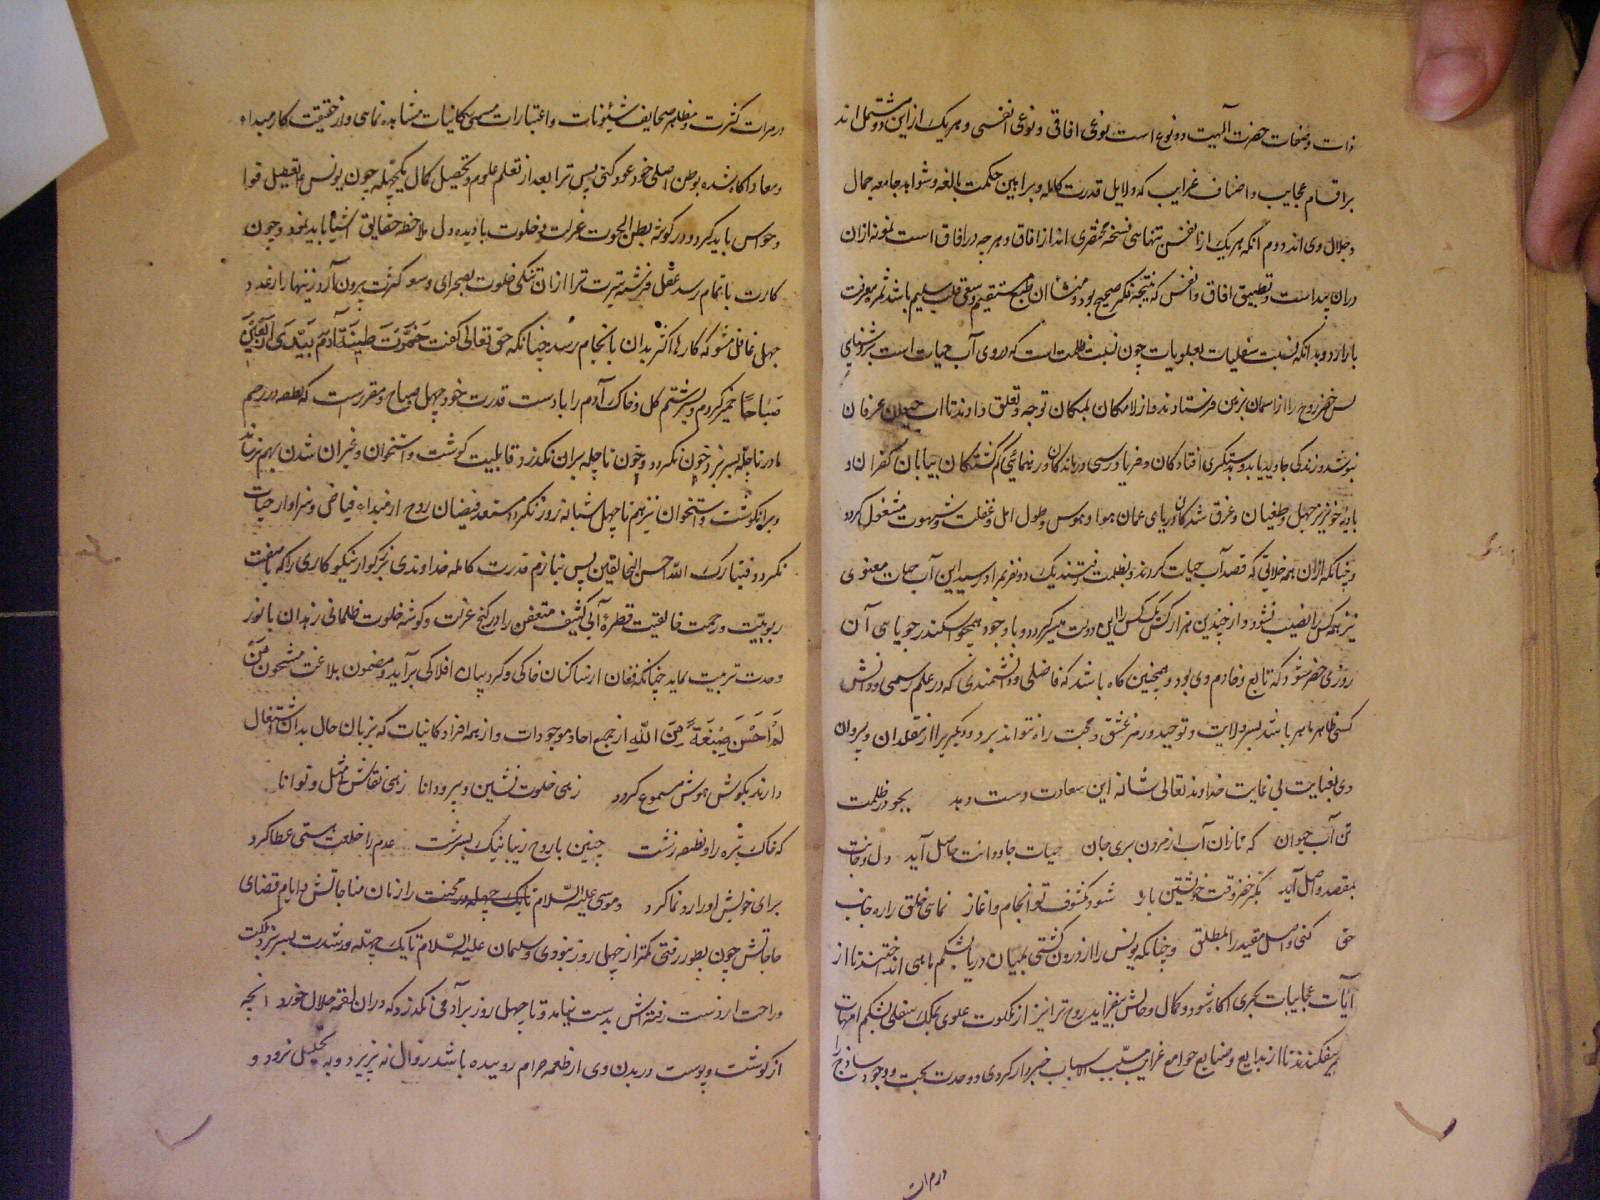 ذات و صفات حضرت آلهیت دو نوع است نوعی افاقی و نوعی انفسی و هر یک از این دو مشتمل اند
بر اقسام عجایب و اصناف غرایب که دلایل قدرت کامله و براهین حکمت بالغه و شواهد جامعه جمال
و جلال وی اند دوم آنکه هر یک از انفس تنهاسی نسخه مختصری اند از افاق و هر چه در افاق است نمونه از ان
در ان پیداست و تطبیق افاق و انفس که نتیجه فکر صحیح بود و منشا ان طبع مستقیم و سعی قلب سلیم باشد ثمره معرفت
بار ارد و بدانکه نسبت سفلیات بعلویات چون نسبت ظلمت است که در وی آب حیات است
پس خضر روح را از اسمان بزمین فرستادند و از لامکان بمکان توجه و تعلق دادند تا اب حیوان عرفان
بنوشد و زندگی جاوید یابد و بدستگیری افتادگان و فریادرسی درماندکان و رهنمائی کم کشتکان بیابان کفران و
بادیه خونریز جهل و طغیان و غرق شدکان دریای عمان هوا و هوس و طول امل و غفلت و شهوت مشغول کردد
و چنانکه از ان همه خلایق که قصد آب حیات کردند و بظلمت رفتند یک دو نفر بمراد رسید این آب حیات معنوی
نیز همه کس را نصیب نشود و از چندین هزار کس یک کس را این دولت میسر کردد و با وجود همچو اسکندر جویای آن
روزی خضر شود که تابع و خادم وی بود و همچنین کاه باشد که فاضلی و دانشمندی که در علم رسمی و دانش
کسی ظاهر ماهر باشد بسر ولایت و توحید و رمز عشق و محبت راه نتواند برد و دیگریرا از مقلدان و پیروان
وی بعنایت بی غایت خداوند تعالی شانه این سعادت دست دهد بجو در ظلمت
تن آب حیوان که نازان آب از مردن بری جان حیات جاودانت حاصل آید دل و جانت
بمقصد واصل آید بکن خضر وقت خویشتن یاد شود مکشوف تو انجام و اغاز نماسی خلق را ره جانب
حق کنی واصل مقید را بمطلق و چنانکه یونس را از درون کشتی بمیان دریا بشکم ماهی انداختند تا از
آیات عجایبات بحری آکاه شود و کمال و حالش بیفزاید روح ترا نیز از ملکوت علوی بملک سفلی بشکم امهات
میفکندند تا از بدایع و صنایع جوامع غرایب مسبب الاسباب خبردار کردی و وحدت بحت و وجود ساذج را
در مرات
در مرات کثرت و مظاهر صحایف شئونات و اعتبارات مسمی بکاینات مشاهده نماسی و از حقیقت کار مبداء
و معاد آکاه شده بوطن اصلی خود عود کنی پس ترا بعد از تعلم علوم و تحصیل کمال یکچهله چون یونس تعطیل قوا
و حواس باید کرد و در کوشه بطن الحوت عزلت و خلوت بادیده دل ملاحظه حقایق اشیا باید نمود و چون
کارت باتمام رسد عقل فرشته سیرت ترا از ان تنکی خلوت بصحرای وسع کثرت بیرون آرد زینهار از عدد
چهل غافل مشو که کارها اکثر بدان بانجام رسد چنانکه حق تعالی کفت خَمَّرْتُ طِینَةَ آدَمَ بِیَدَیَّ اَرْبَعِینَ
صَبَاحًا خمیر کردم و بسرشتم کل و خاک آدم را بادست قدرت خود چهل صباح و مقررست که نطفه در رحم
مادر تا چله بسر نبرد خون نکردد و خون تا چله بران نکذرد قابلیت کوشت و استخوان و غیر ان شدن بهم نرساند
و بر ان کوشت و استخوان نیز هم تا چهل شبانه روز نکذرد مستعد فیضان روح از مبداء فیاض و سزاوار حیات
نکردد فتبارک الله احسن الخالقین پس بنازم قدرت کامله خداوندی بزرکوار نیکوکاری را که بصفت
ربوبیت و رحمت خالقیت قطره آبی کثیف متعفن را در کنج عزلت و کوشه خلوت ظلمانی زهدان بانور
وحدت تربیت نماید چنانکه فغان از ساکنان خاکی و کروبیان افلاکی برآید و مضمون بلاغت مشحون مَنْ
اَحْسَنُ صِبْغَةً مِنَ اللّٰهِ از جمیع احاد موجودات و از همه افراد کاینات که بزبان حال بدان اشتغال
دارند بکوش هوش مسموع کردد زهی خلوت نشین و پیرو دانا زهی نقاش بیمثل و توانا
که خاک تیره را و نطفه زشت چنین باروح زیبا نیک بسرشت عدم را خلعت هستی عطا کرد
برای خویش او را رونما کرد و موسی علیه السلام تا یک چهله ور محنت را زمان مناجاتش و ایام قضای
حاجاتش چون بطور رفتی کمتر از چهل روز نبودی و سلیمان علیه السلام تا یک چهله در شدت بسر نبرد ملکت
و راحت از دست رفته اش بدست نیامد و تا چهل روز بر آدمی نکذرد که دران لقمه حلال خورد انچه
از کوشت و پوست در بدن وی از طعمه حرام روییده باشد زوال نه پذیرد و به تحلیل نرود و